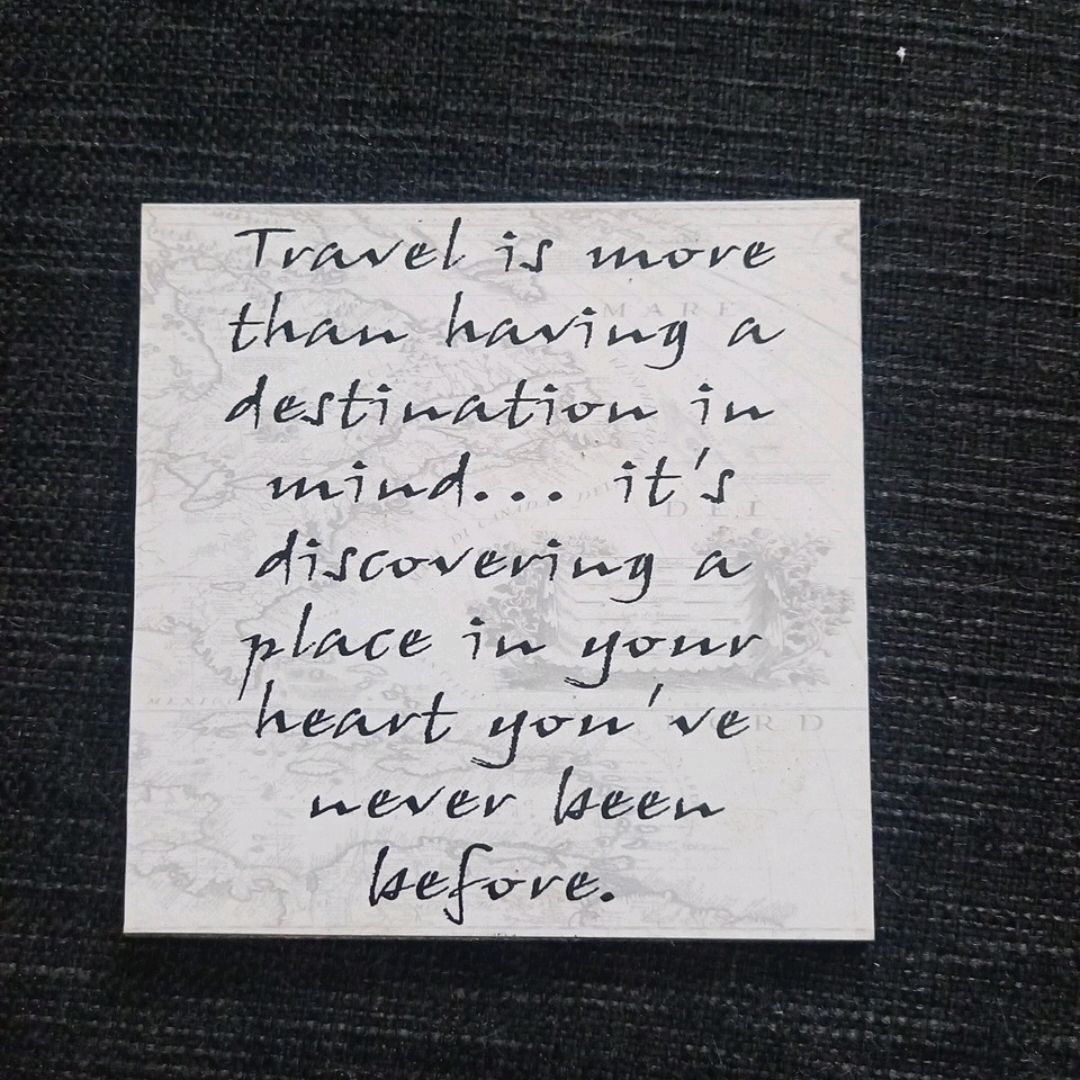 Travel is more
than having a
MARE
destination in
mind... it's
DEL
DI CANADA
discovering a
place in your
MEXICO
heart you've
never been
before.